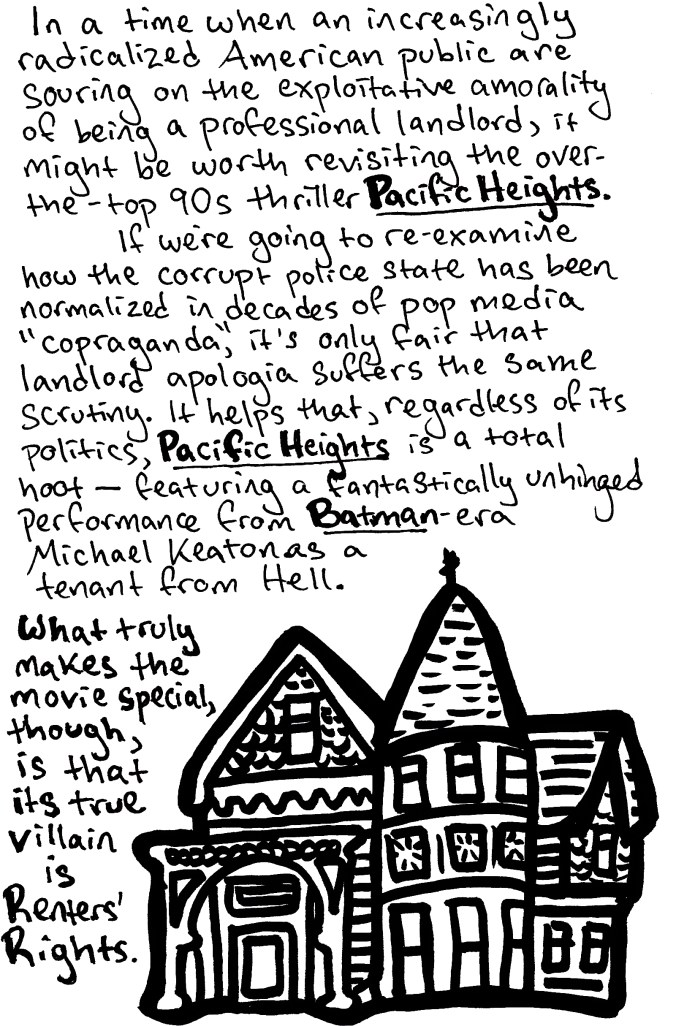 In a time when an increasingly
radicalized American public are
souring on the exploitative amorality
of being a professional landlord, it
might be worth revisiting the over-
the-top 90s thriller Pacific Heights.
If we're going to re-examine
how the corrupt police state has been
normalized in decades of pop media
"copraganda", it's only fair that
landlord apologia suffers the same
scrutiny. It helps that, regardless of its
politics, Pacific Heights is a total
hoot – featuring a fantastically unhinged
performance from Batman-era
Michael Keaton as a
tenant from Hell.
What truly
makes the
movie special,
though,
is that
its true
villain
is
Renters'
Rights.